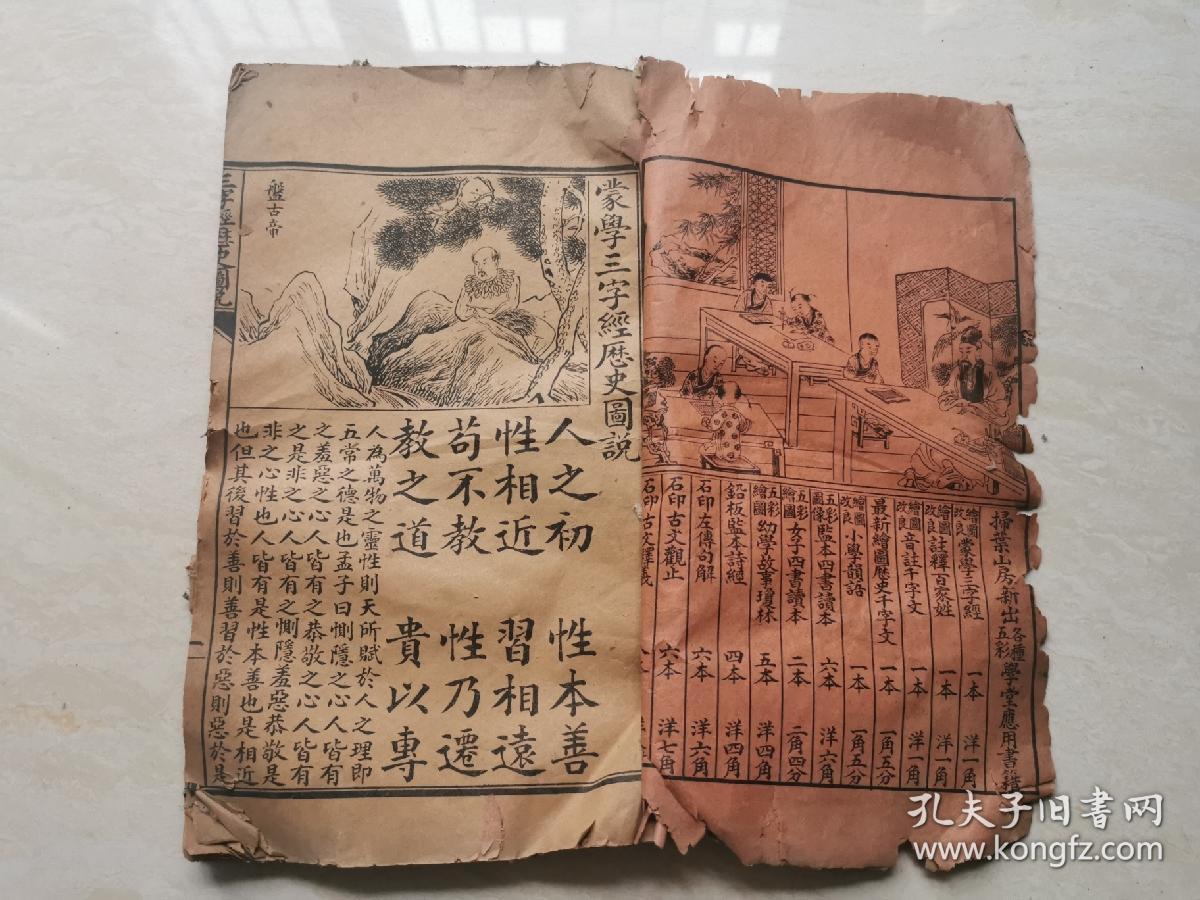 掃葉山房新出各種五彩學堂應用書籍
繪圖改良蒙學三字經 一本 洋一角
繪圖改良註釋百家姓 一本 洋一角
繪圖改良音註千字文 一本 洋一角
最新繪圖歷史千字文 一本 一角五分
繪圖改良小學韻語 一本 一角五分
五彩圖像監本四書讀本 六本 洋六角
五彩繪圖女子四書讀本 二本 二角四分
五彩繪圖幼學故事瓊林 五本 洋四角
鉛板監本詩經 四本 洋四角
石印左傳句解 六本 洋六角
石印古文觀止 六本 洋七角
石印古文釋義
蒙學三字經歷史圖說
盤古帝
人之初 性本善
性相近 習相遠
苟不教 性乃遷
教之道 貴以專
人為萬物之靈性則天所賦於人之理即
五常之德是也孟子曰惻隱之心人皆有
之羞惡之心人皆有之恭敬之心人皆有
之是非之心人皆有之惻隱羞惡恭敬是
非之心性也人皆有是性本善也是相近
也但其後習於善則善習於惡則惡於是
三字經歷史圖說
一
孔夫子旧书网
www.kongfz.com